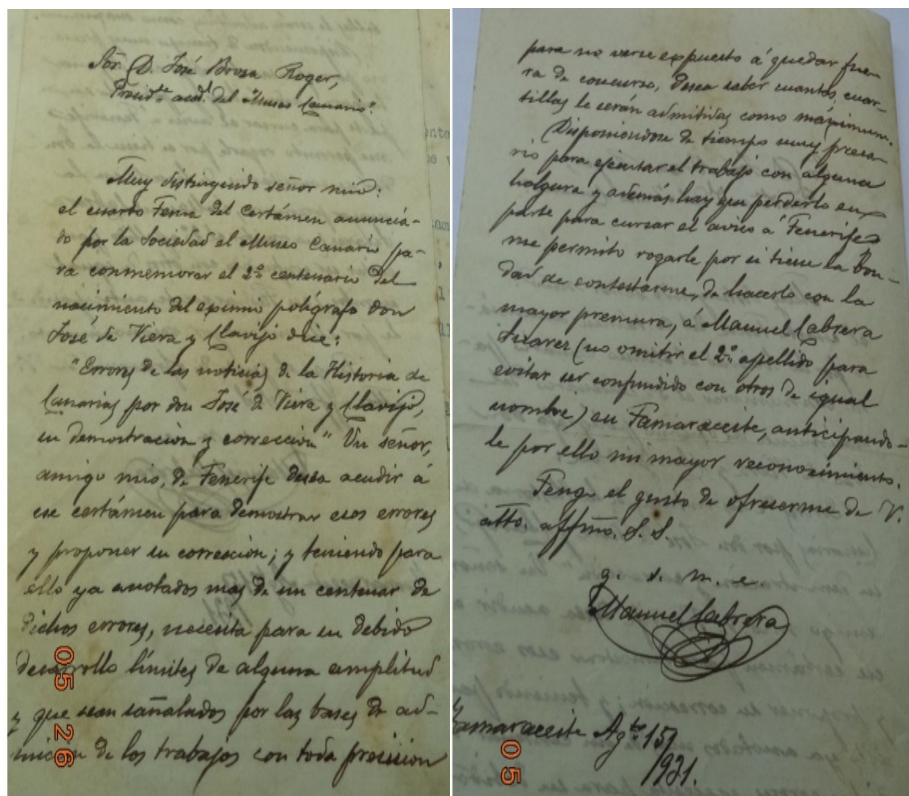 Sor. D. José Broza Roger,
Presidte. acdl. del "Museo Canario".
Muy distinguido señor mio:
el cuarto Tema del Certámen anuncia-
do por la Sociedad el Museo Canario pa-
ra conmemorar el 2º centenario del
nacimiento del eximio polígrafo don
José de Viera y Clavijo dice:
"Errores de las noticias de la Historia de
Canarias por don José de Viera y Clavijo,
su demostración y corrección" Un señor,
amigo mio, de Tenerife desea acudir á
ese certámen para demostrar esos errores
y proponer su corrección; y teniendo para
ello ya anotados mas de un centenar de
dichos errores, necesita para su debido
desarrollo límites de alguna amplitud
y que sean señalados por las bases de ad-
misión de los trabajos con toda precision
para no verse expuesto á quedar fue-
ra de concurso, desea saber cuantas cuar-
tillas le serán admitidas como máximum.
Disponiendose de tiempo muy preca-
rio para ejecutar el trabajo con alguna
holgura y además hay que perderlo en
parte para cursar el aviso á Tenerife
me permito rogarle por si tiene la bon-
dad de contestarme, de hacerlo con la
mayor premura, á Manuel Cabrera
Suarez (no omitir el 2º apellido para
evitar ser confundido con otros de igual
nombre) en Tamaraceite, anticipando-
le por ello mi mayor reconocimiento.
Tengo el gusto de ofrecerme de V.
atto. affmo. S. S.
q. s. m. e.
Manuel Cabrera
Tamaraceite Agto. 15/
1931.
05 26
05